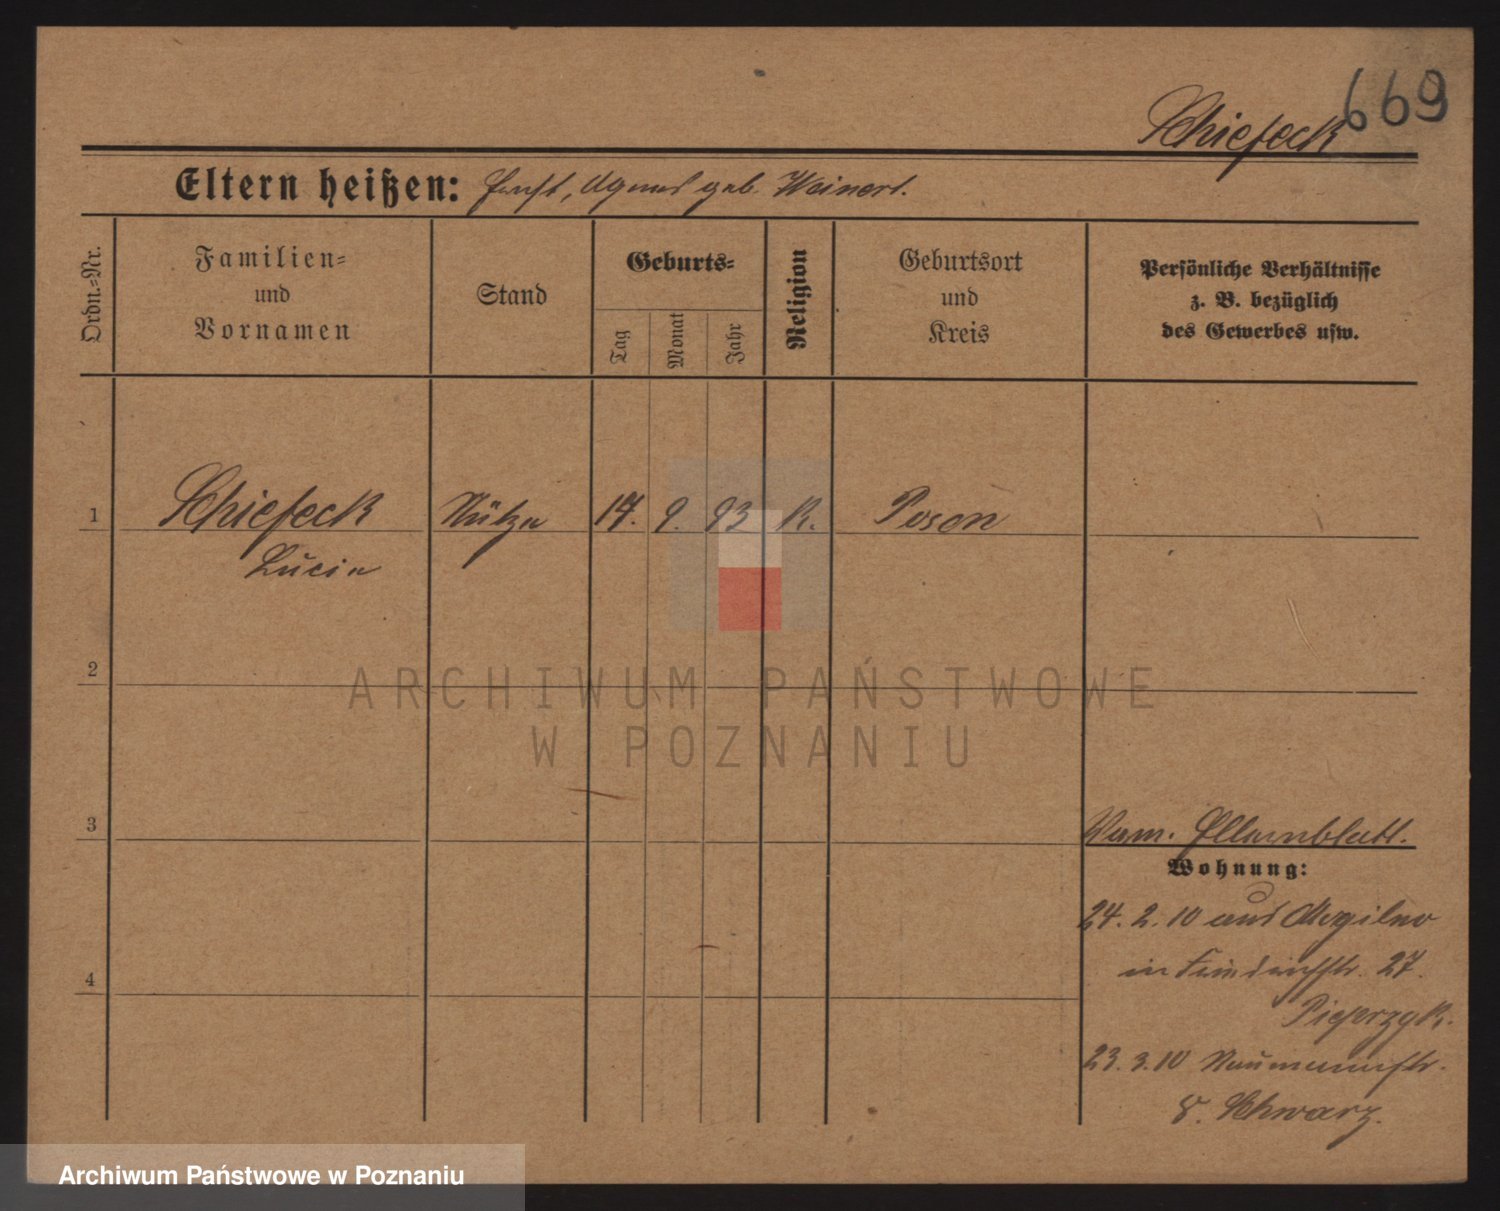 669
Schiefeck
Eltern heißen: Ernst, Agnes geb. Weinert.
Ordn.-Nr.
Familien-
und
Vornamen
Stand
Geburts-
Tag
Monat
Jahr
Religion
Geburtsort
und
Kreis
Persönliche Verhältnisse
z. B. bezüglich
des Gewerbes usw.
1 Schiefeck 17. 9. 93 K. Posen
Lucia
2
3
Elternblatt.
Wohnung:
4
24. 2. 10 aus Mogilno
in Friedrichstr. 27.
23. 3. 10 Naumannstr.
8. Schwarz.
ARCHIWUM PAŃSTWOWE
W POZNANIU
Archiwum Państwowe w Poznaniu